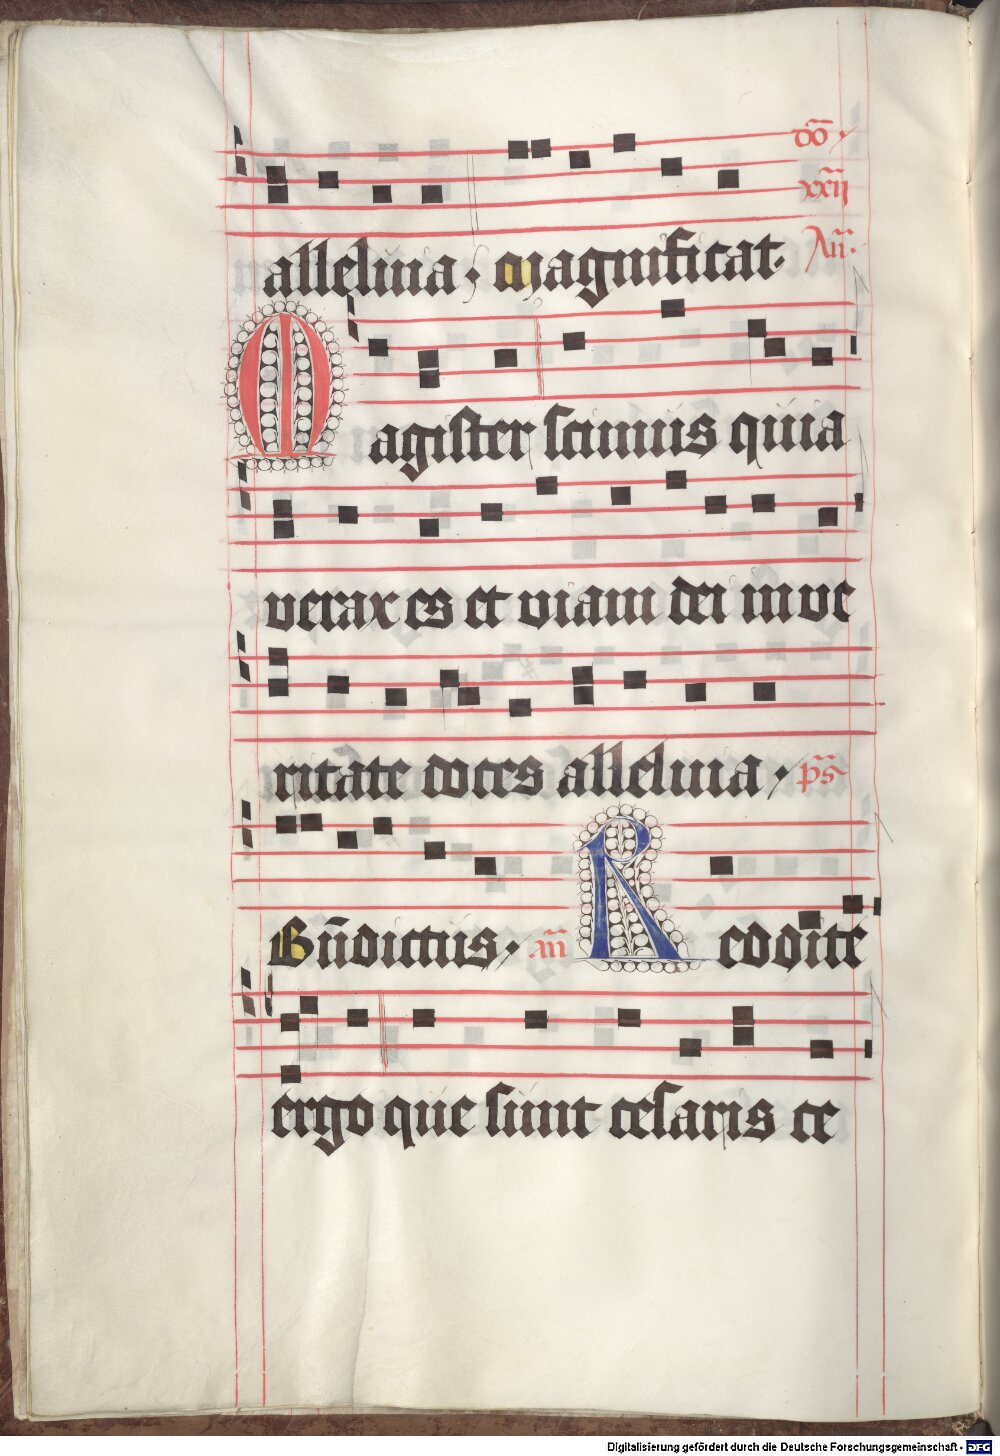 dō·
xxij
alleluia · magnificat· Añ·
Magister scimus quia
verax es et viam dei in ve
ritate doces alleluia · p̄s
Bn̄dictus · añ Reddite
ergo que sunt cesaris ce
Digitalisierung gefördert durch die Deutsche Forschungsgemeinschaft - DFG